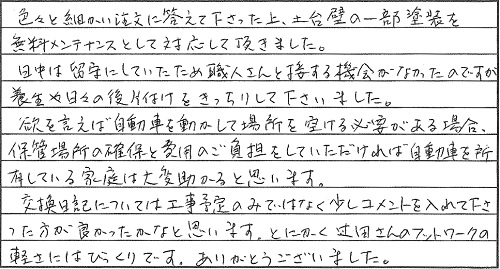 色々と細かい注文に答えて下さった上、土台壁の一部塗装を
無料メンテナンスとして対応して頂きました。
日中は留守にしていたため職人さんと接する機会がなかったのですが
養生や日々の後片付けをきっちりして下さいました。
欲を言えば自動車を動かして場所を空ける必要がある場合、
保管場所の確保と費用のご負担をしていただければ自動車を所
有している家庭は大変助かると思います。
交換日記については工事予定のみではなく少しコメントを入れて下さ
った方が良かったかなと思います。とにかく辻田さんのフットワークの
軽さにはびっくりです。ありがとうございました。